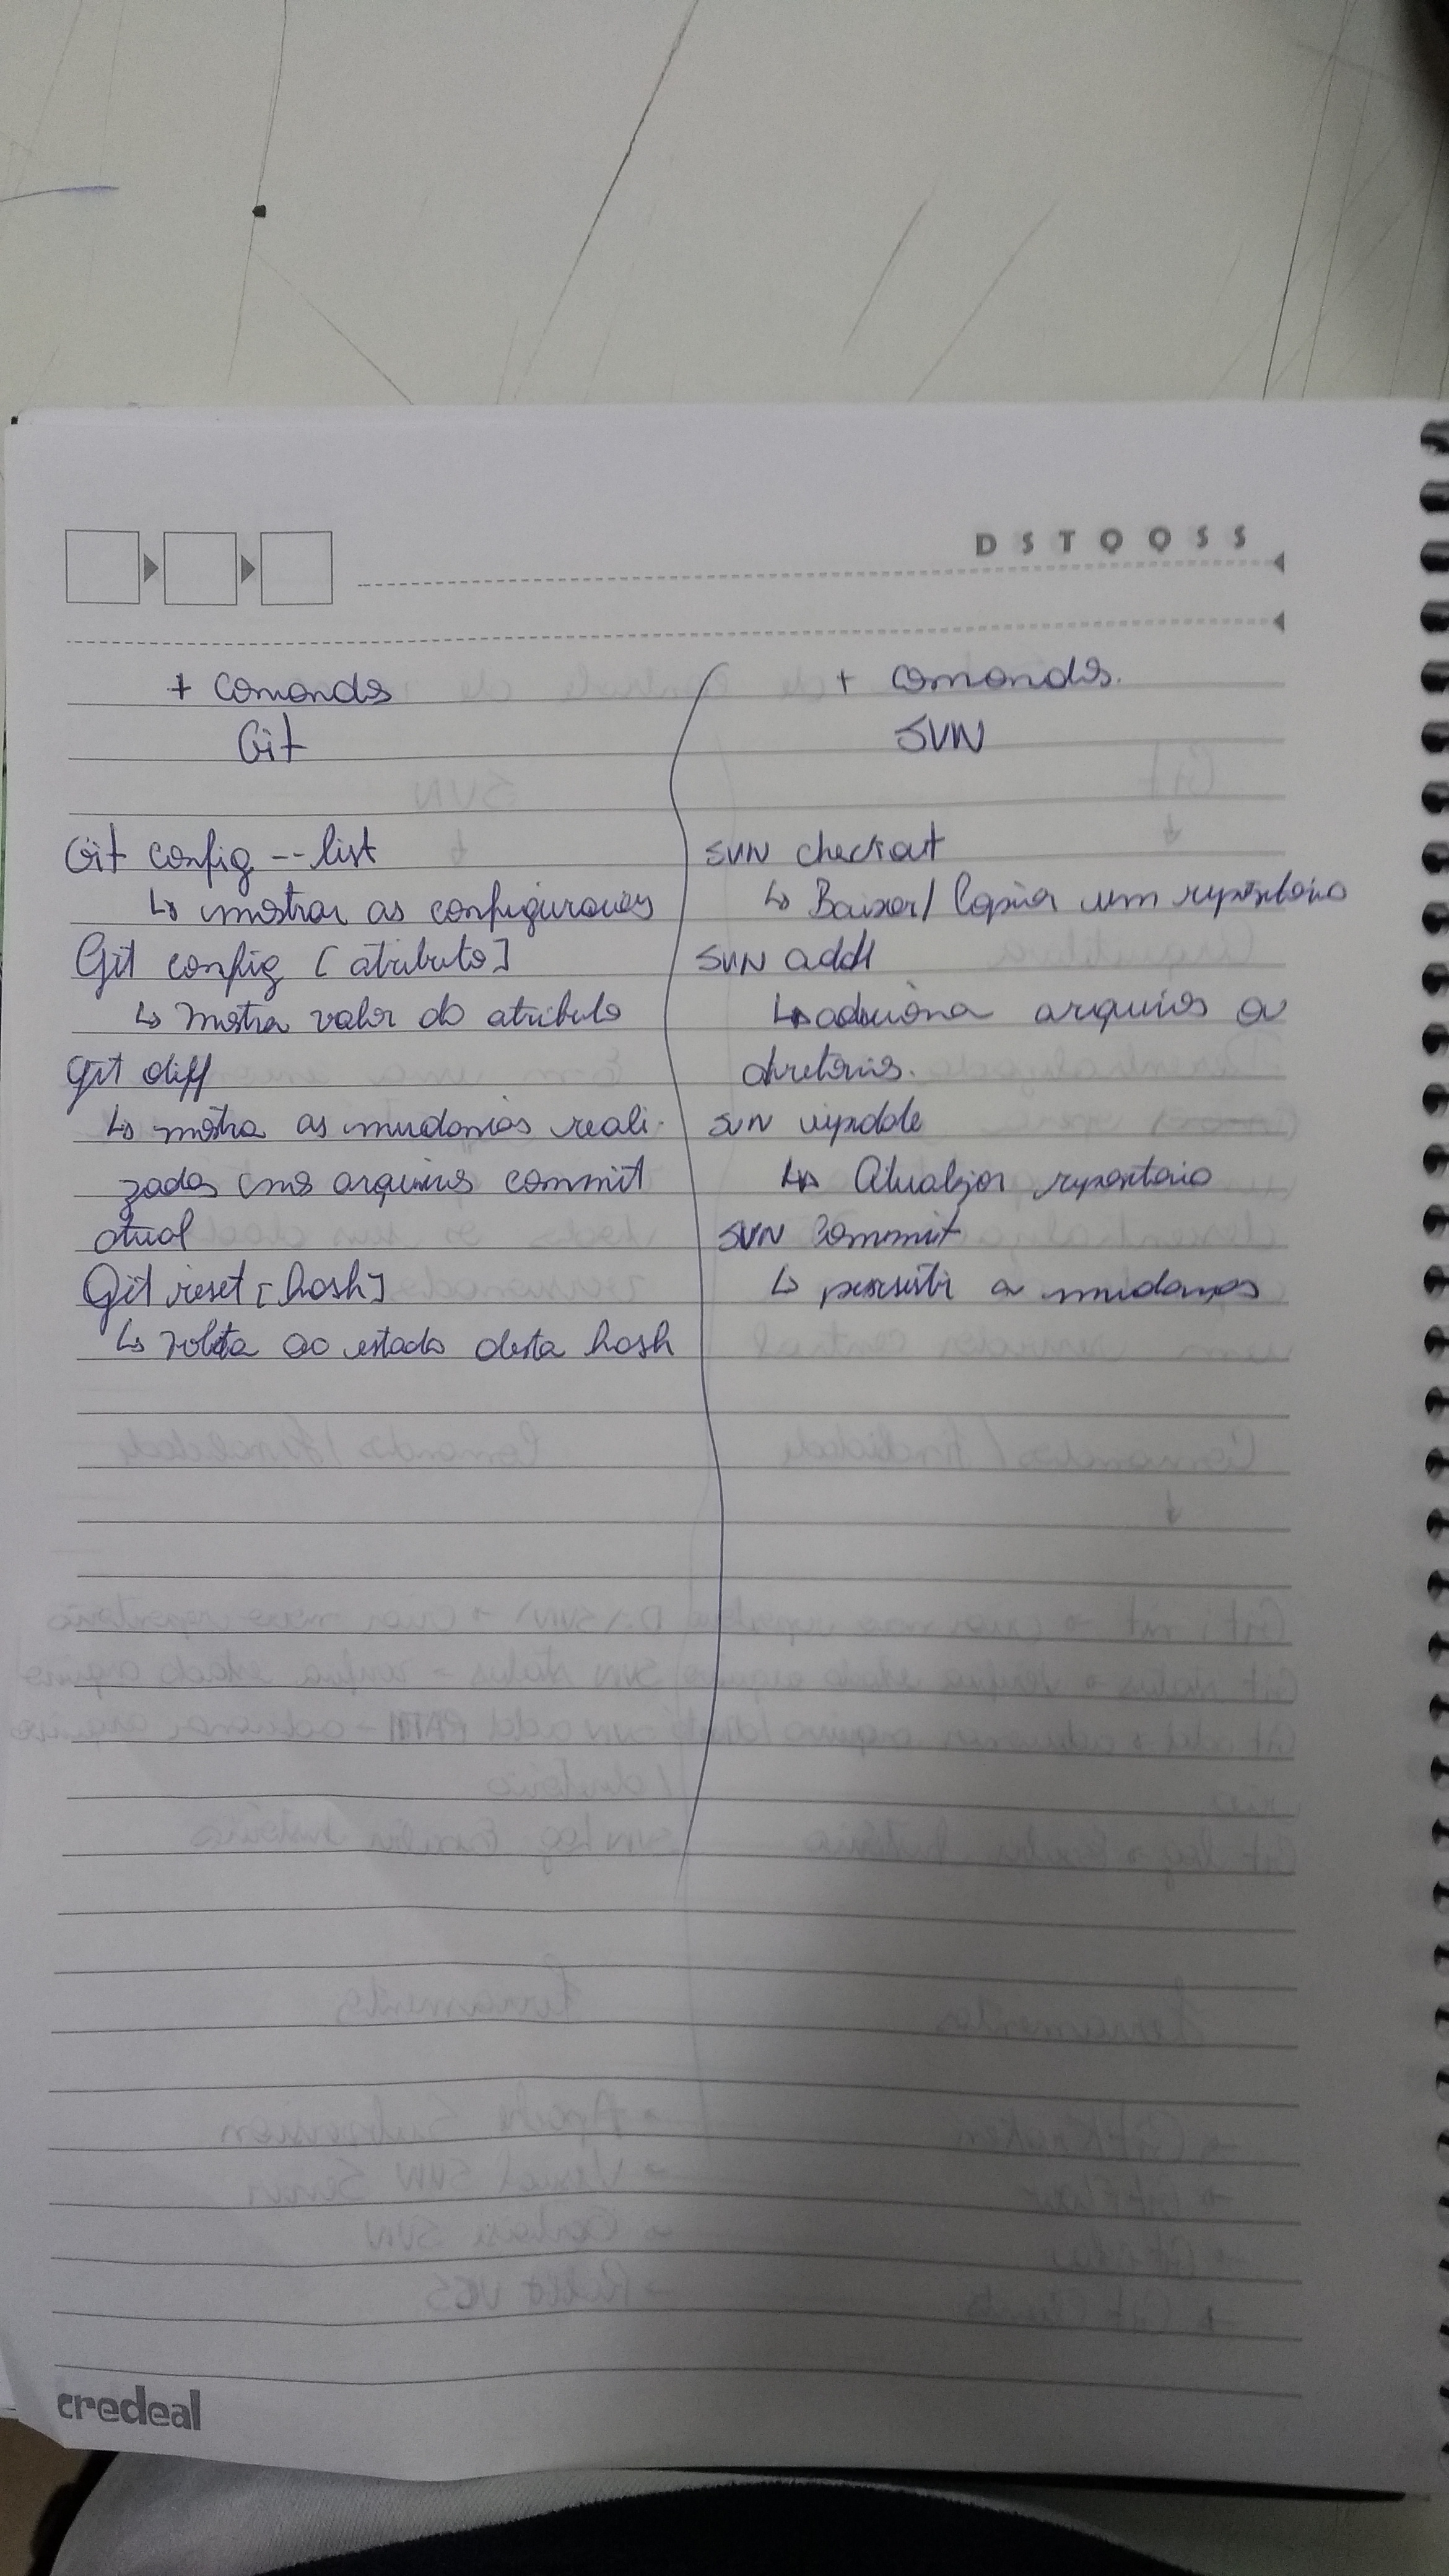 D S T Q Q S S
+ comandos
Git
Git config --list
↳ mostrar as configurações
Git config [atributo]
↳ Mostra valor do atributo
git diff
↳ mostra as mudanças reali-
zadas (nos arquivos commit
atual
Git reset [hash]
↳ volta ao estado desta hash
+ comandos.
SVN
SVN checkout
↳ Baixar/Copiar um repositório
SVN add
↳ adiciona arquivos ou
diretórios.
SVN update
↳ Atualizar repositório
SVN Commit
↳ persistir a mudanças
credeal